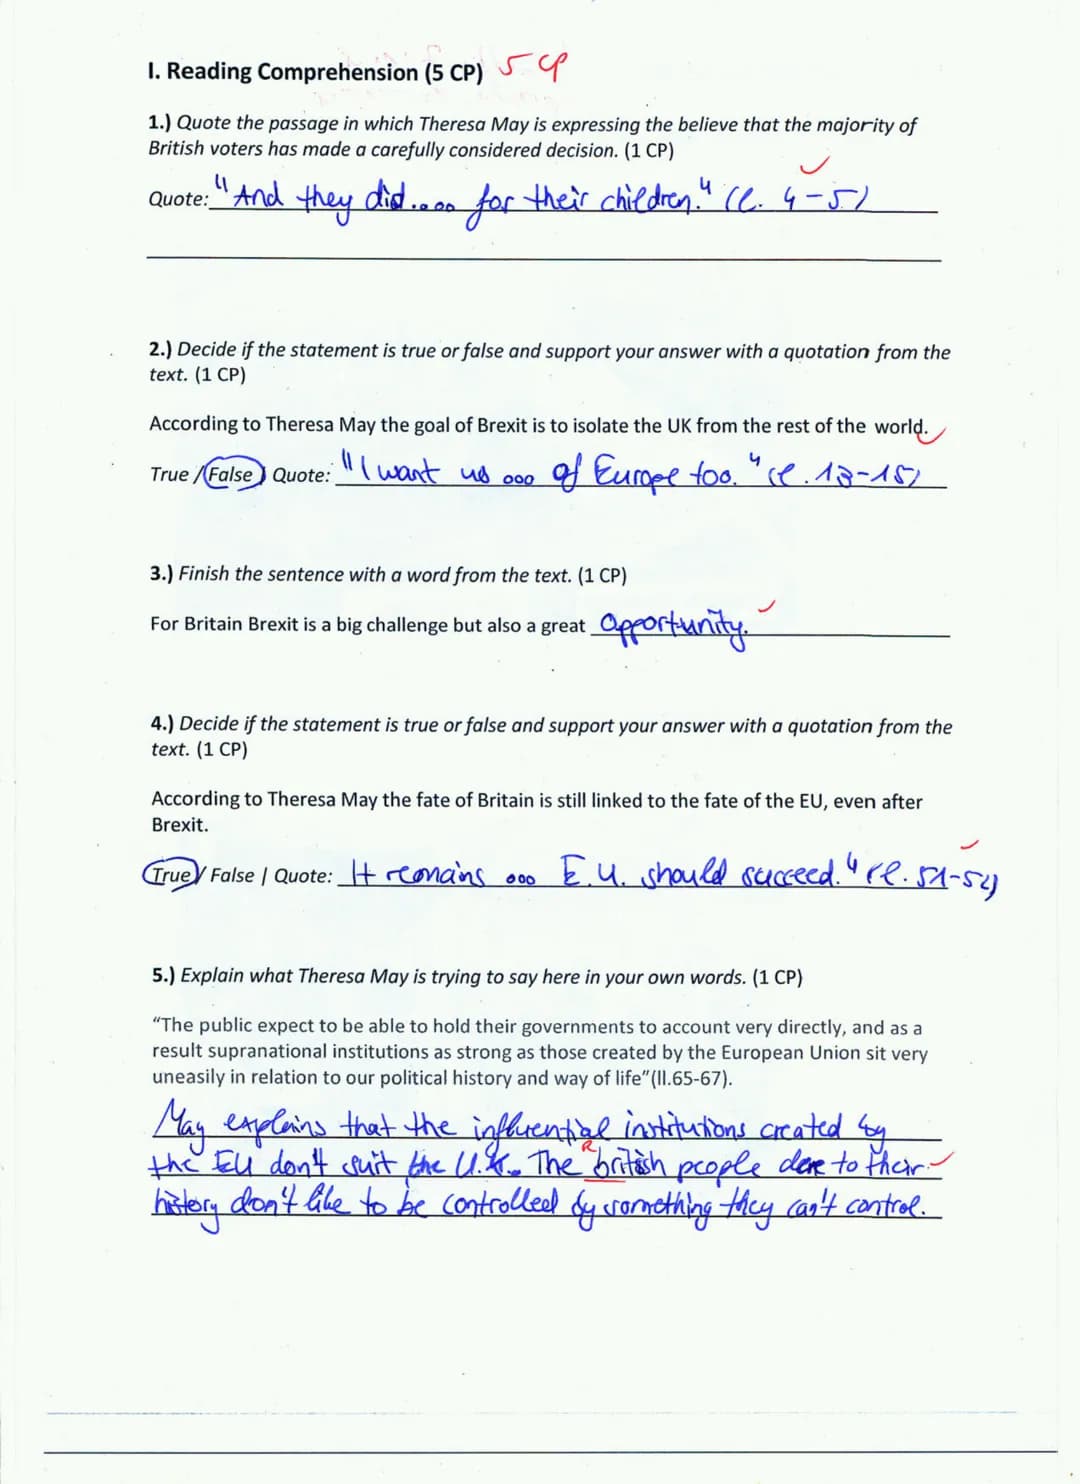 I. Reading Comprehension (5 CP) 5 CP
1.) Quote the passage in which Theresa May is expressing the believe that the majority of
British voters has made a carefully considered decision. (1 CP)
Quote: "And they did.... for their children." (l. 4-5)
2.) Decide if the statement is true or false and support your answer with a quotation from the
text. (1 CP)
According to Theresa May the goal of Brexit is to isolate the UK from the rest of the world.
True / False | Quote: "I want us ... of Europe too." (l. 13-15)
3.) Finish the sentence with a word from the text. (1 CP)
For Britain Brexit is a big challenge but also a great opportunity.
4.) Decide if the statement is true or false and support your answer with a quotation from the
text. (1 CP)
According to Theresa May the fate of Britain is still linked to the fate of the EU, even after
Brexit.
True / False | Quote: It remains ... E.U. should succeed." (l. 51-52)
5.) Explain what Theresa May is trying to say here in your own words. (1 CP)
"The public expect to be able to hold their governments to account very directly, and as a
result supranational institutions as strong as those created by the European Union sit very
uneasily in relation to our political history and way of life"(ll.65-67).
May explains that the influential institutions created by
R
the EU don't suit the U.K. The british people due to their
history don't like to be controlled by something they can't control.